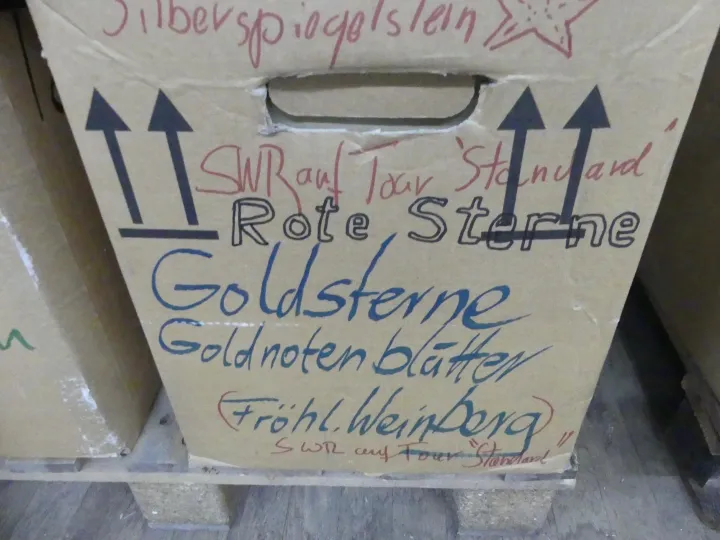 Silberspiegelstein
SWR auf Tour "Standard"
Rote Sterne
Goldsterne
Goldnotenblätter
(Fröhl. Weinberg)
SWR auf Tour "Standard"